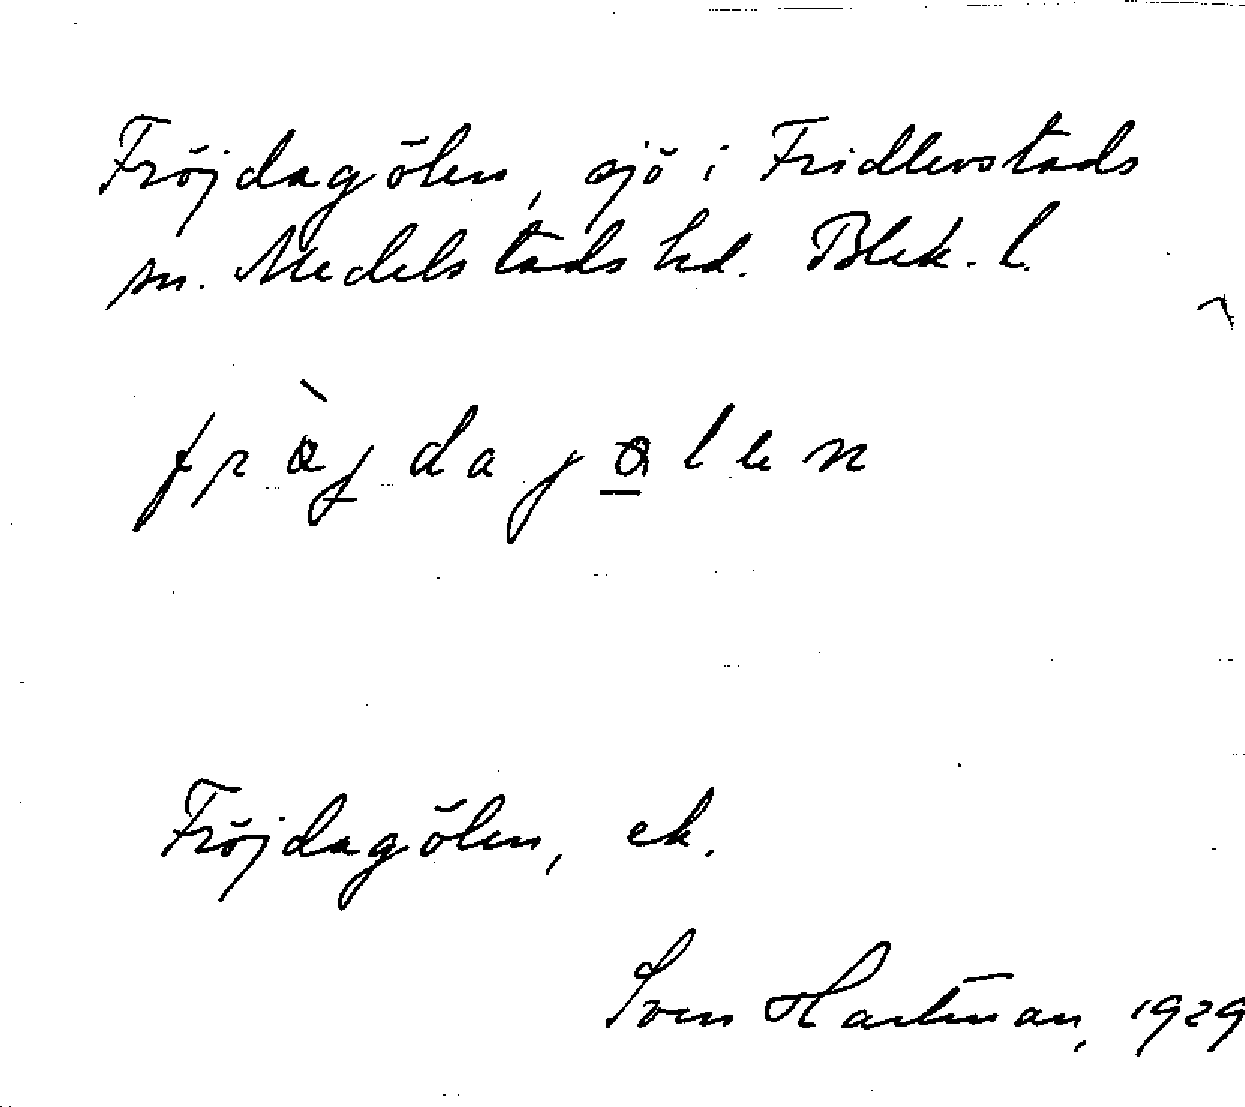 Fröjdagölen, sjö i Fridlevstads
sn. Medelstads hd. Blek. l.
Fröjdagölen, ek.
Sven Hartman, 1929